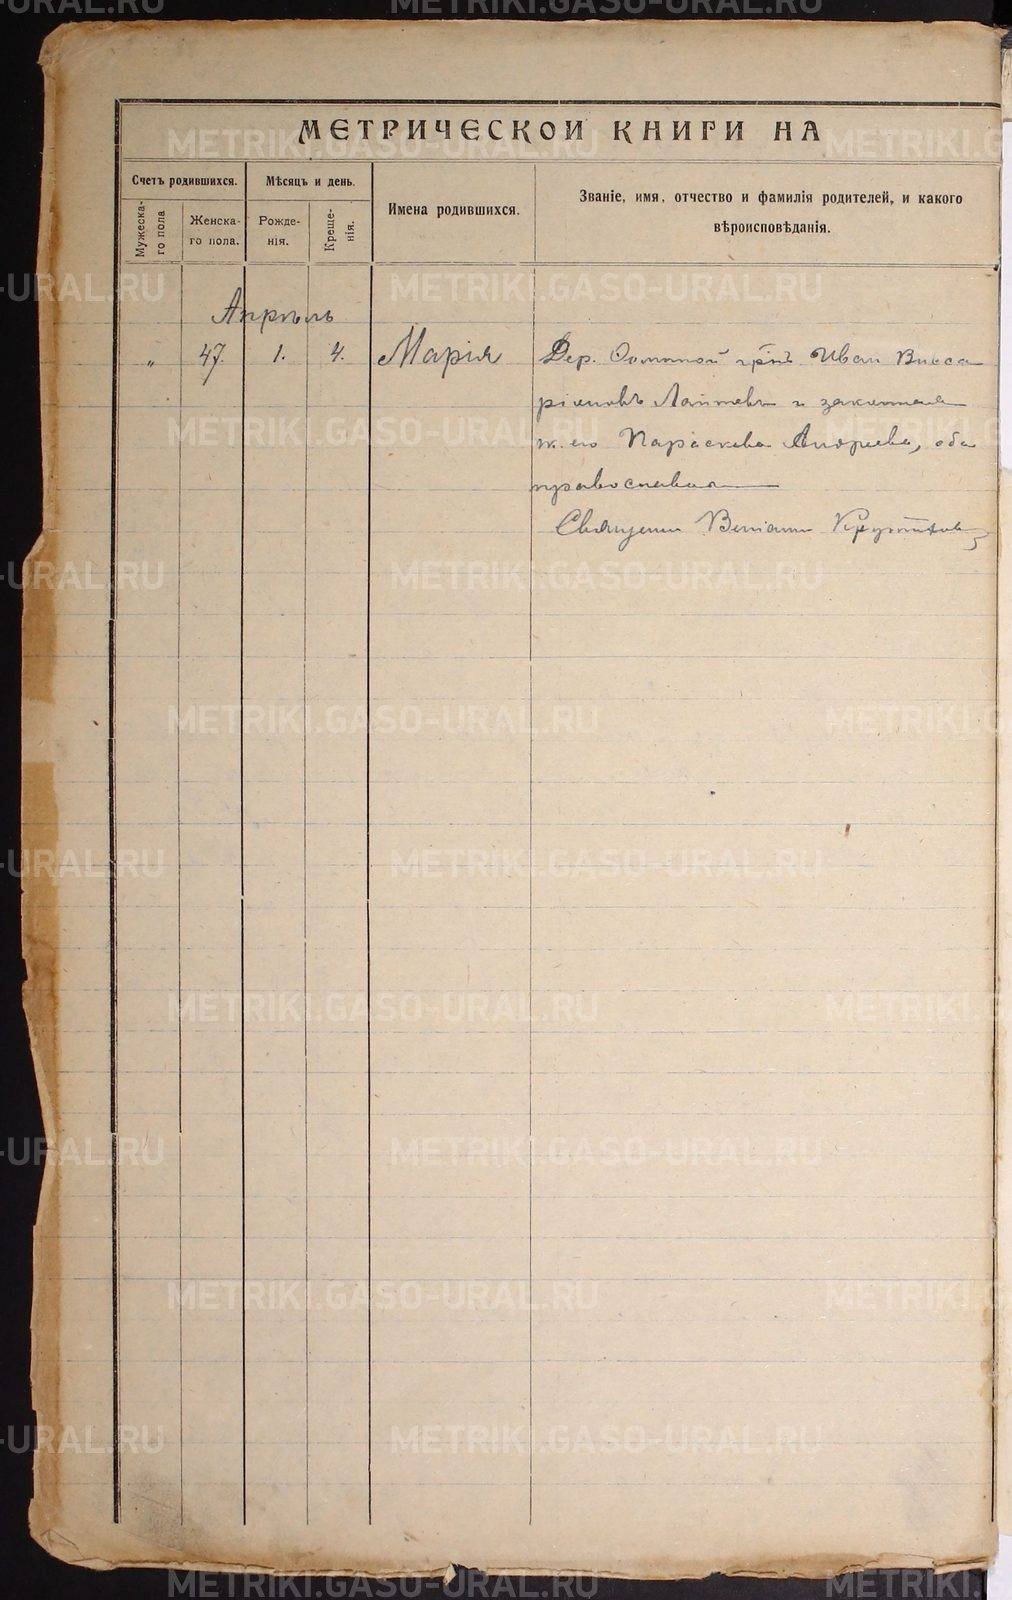 МЕТРИЧЕСКОЙ КНИГИ НА
Счетъ родившихся.
Мѣсяцъ и день.
Имена родившихся.
Званіе, имя, отчество и фамилія родителей, и какого
вѣроисповѣданія.
Мужеска-
го пола
Женска-
го пола.
Рожде-
нія.
Креще-
нія.
Апрѣль
„ 47. 1. 4. Марія
Дер. гр-нъ Иван Висса
ріоновъ Лаптевъ и законная
ж. его Параскева Андреева, оба
православные
Священник Вениамин
METRIKI.GASO-URAL.RU